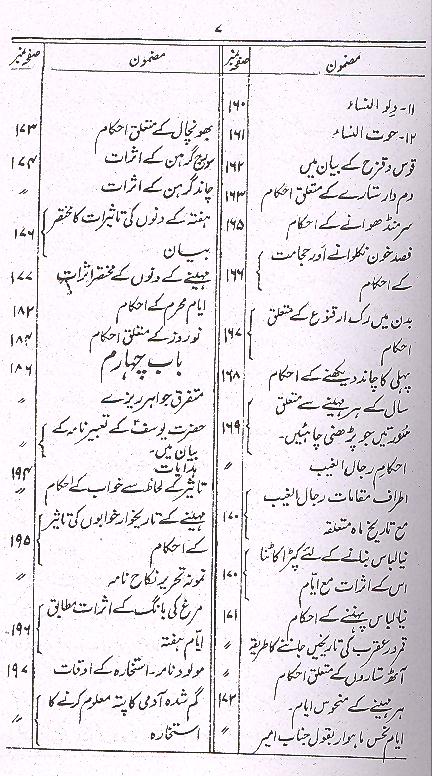 ۷
مضمون
صفحہ نمبر
۱۱- دلو النساء ۱۶۰
۱۲- حوت النساء ۱۶۱
قوس و قزح کے بیان میں ۱۶۲
دم دار ستارے کے متعلق احکام ۱۶۳
سر منڈھوانے کے احکام ۱۶۵
فصد خون نکلوانے اور حجامت
کے احکام ۱۶۶
بدن میں رگ
کے متعلق
احکام ۱۶۷
پہلی کا چاند دیکھنے کے احکام ۱۶۸
سال کے ہر مہینے سے متعلق
سورتیں جو پڑھنی چاہئیں۔ ۱۶۹
احکام رجال الغیب 〃
اطراف مقامات رجال الغیب
مع تاریخ ماہ متعلقہ ۱۷۰
نیا لباس بنانے کے لئے کپڑا کاٹنا
اس کے اثرات مع ایام ۱۷۰
نیا لباس پہننے کے احکام ۱۷۱
قمر در عقرب کی تاریخیں جاننے کا طریقہ 〃
آٹھ ستاروں کے متعلق احکام 〃
ہر مہینے کے منحوس ایام۔ ۱۷۲
ایام نحس ماہوار بقول جناب امیر 〃
مضمون
صفحہ نمبر
بھونچال کے متعلق احکام ۱۷۳
سورج گرہن کے اثرات ۱۷۴
چاند گرہن کے اثرات 〃
ہفتہ کے دنوں کی تاثیرات کا مختصر
بیان ۱۷۶
مہینے کے دنوں کے مختصر اثرات ۱۷۷
ایام محرم کے احکام ۱۸۲
نوروز کے متعلق احکام ۱۸۴
باب چہارم ۱۸۶
متفرق جواہر ریزے 〃
حضرت یوسفؑ کے تعبیر نامہ کے
بیان میں۔ 〃
ہدایات ۱۹۴
تاثیر کے لحاظ سے خواب کے احکام 〃
مہینے کے تاریخوار خوابوں کی تاثیر
کے احکام ۱۹۵
نمونہ تحریر نکاح نامہ 〃
مرغ کی بانگ کے اثرات مطابق
ایام ہفتہ ۱۹۶
مولود نامہ۔ استخارہ کے اوقات ۱۹۷
گم شدہ آدمی کا پتہ معلوم کرنے کا
استخارہ 〃